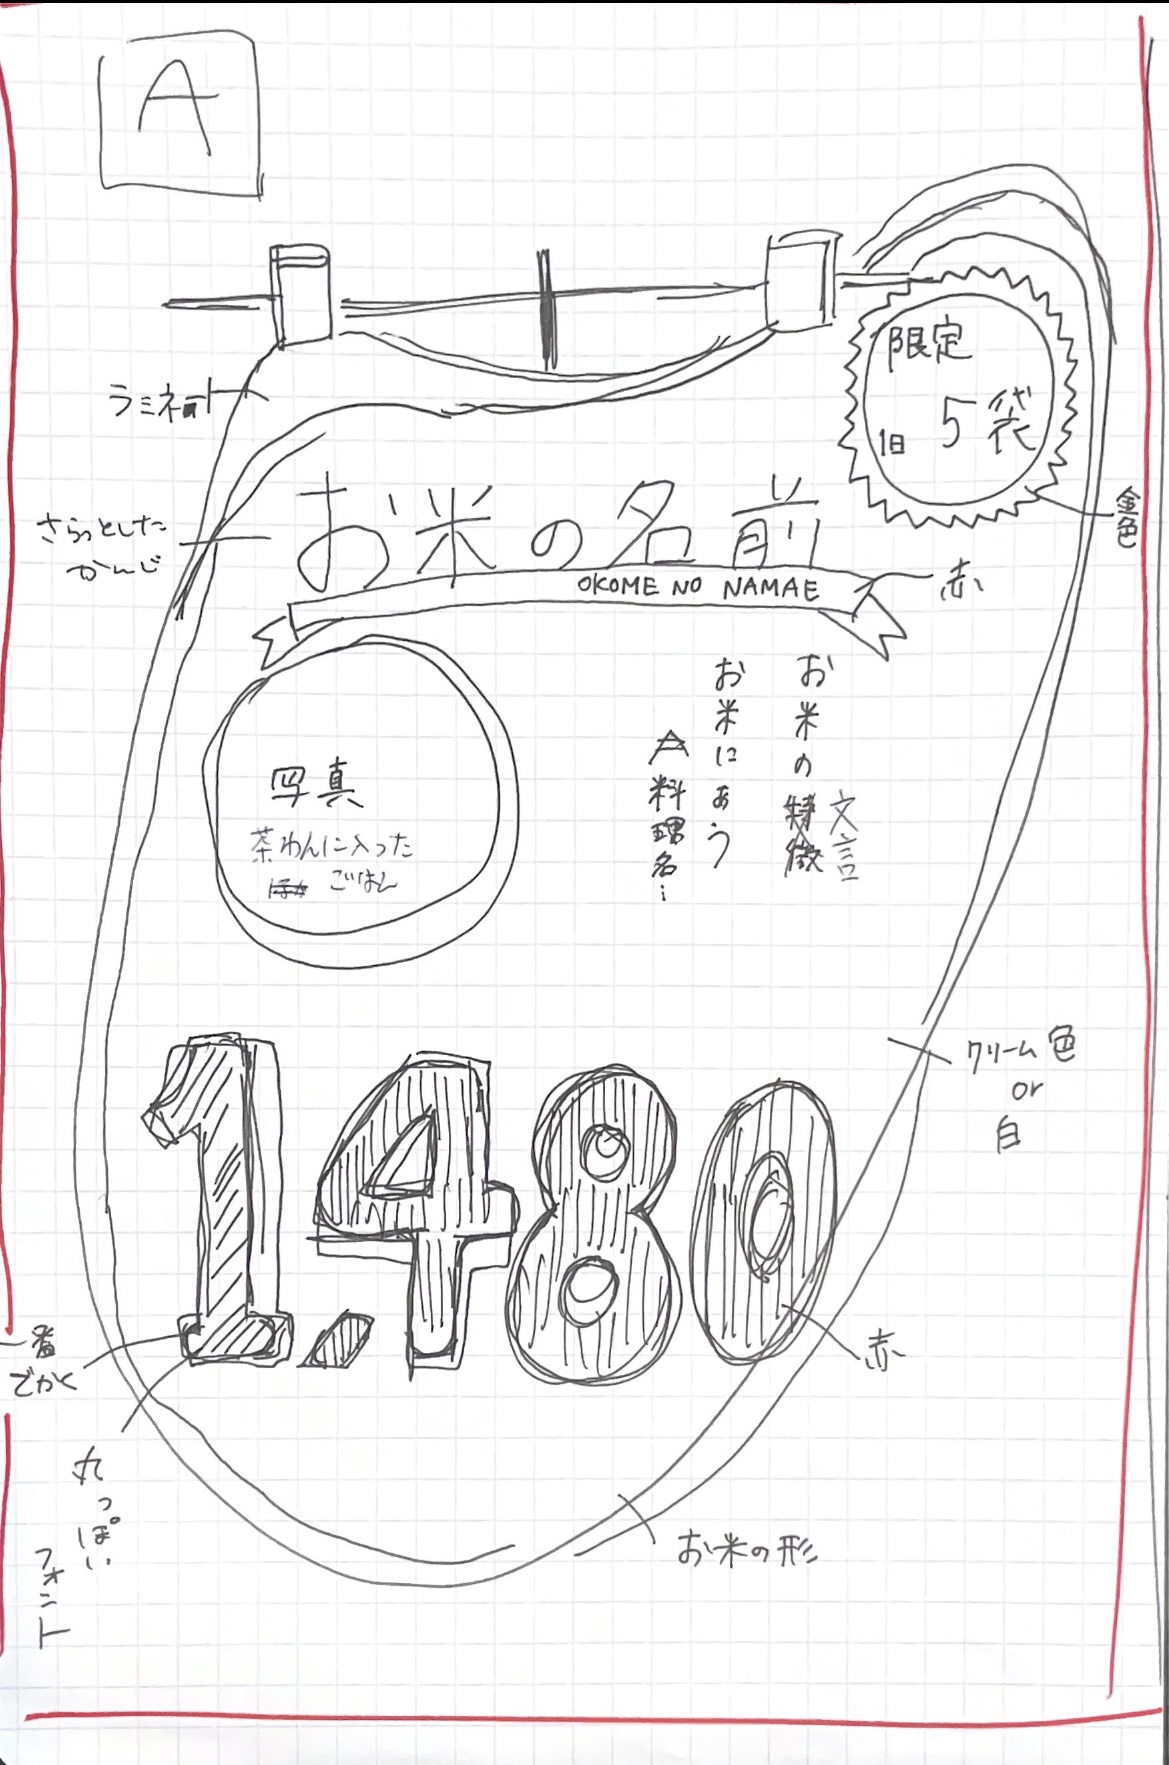 A
限定
1日 5袋
金色
ラミネート
さらっとした
かんじ
お米の名前
OKOME NO NAMAE
赤
お米の
文言
お米にあう
料理名…
写真
茶わんに入った
ごはん
クリーム色
or
白
1,480
一番
でかく
赤
丸っぽい
フォント
お米の形